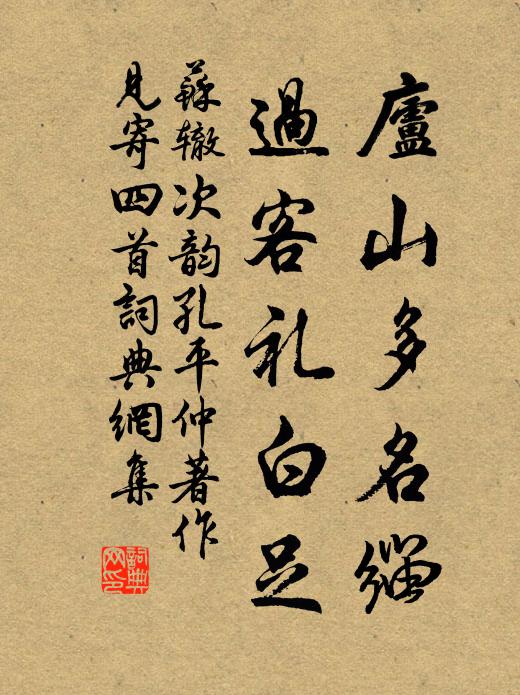 廬山多名緇
過客礼白足
蘇辙次韵孔平仲著作
見寄四首詞典網集
詞典
网印